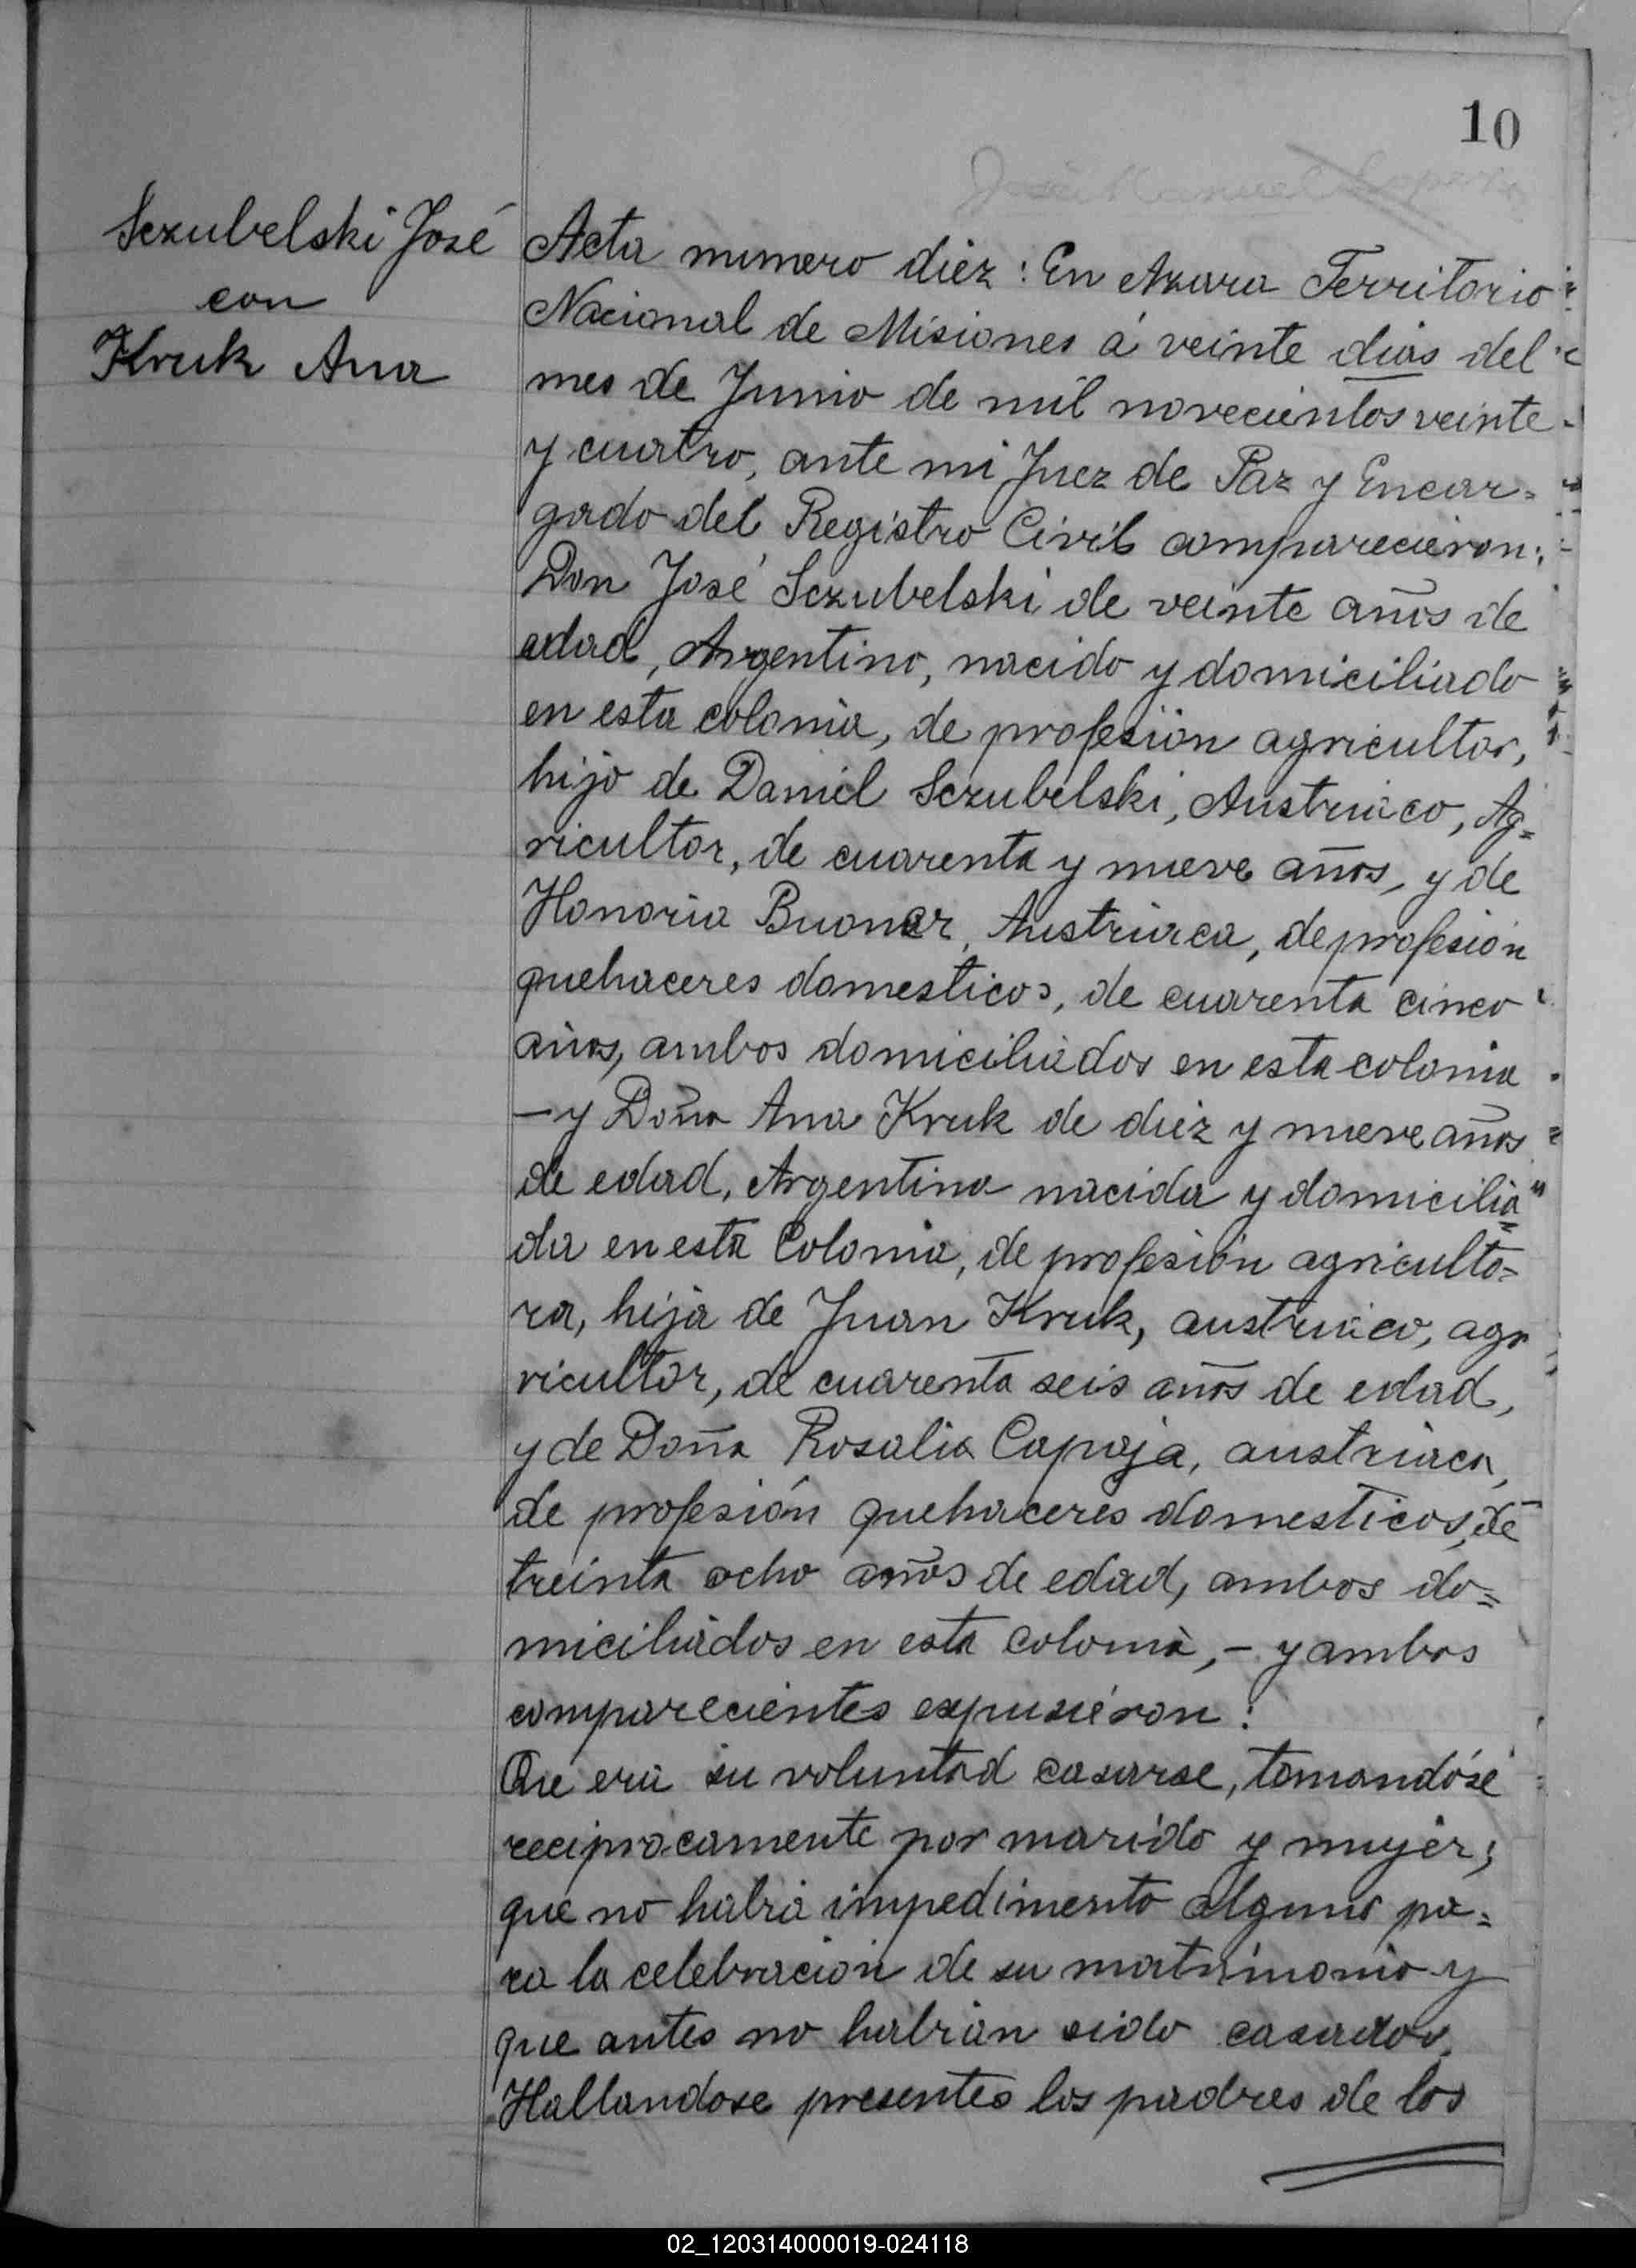 10
Sczubelski José
con
Kruk Ana
Acta numero diez: En Azara Territorio
Nacional de Misiones á veinte dias del
mes de Junio de mil novecientos veinte
y cuatro, ante mi Juez de Paz y Encar=
gado del Registro Civil comparecieron:
Don José Sczubelski de veinte años de
edad, Argentino, nacido y domiciliado
en esta colonia, de profesion agricultor,
hijo de Daniel Sczubelski, Austriaco, Ag=
ricultor, de cuarenta y nueve años, y de
Honoria Buoner, Austriaca, de profesion
quehaceres domesticos, de cuarenta cinco
años, ambos domiciliados en esta colonia
— y Doña Ana Kruk de diez y nueve años
de edad, Argentina nacida y domicilia=
da en esta Colonia, de profesión agriculto=
ra, hija de Juan Kruk, austriaco, agr
ricultor, de cuarenta seis años de edad,
y de Doña Rosalia Capaja, austriaca,
de profesión quehaceres domesticos, de
treinta ocho años de edad, ambos do=
miciliados en esta colonia, - y ambos
comparecientes expusieron:
Que era su voluntad casarse, tomandóse
reciprocamente por marido y mujer;
que no habia impedimento alguno pa=
ra la celebracion de su matrimonio y
que antes no habian sido casados.
Hallandose presentes los padres de los
02_120314000019-024118